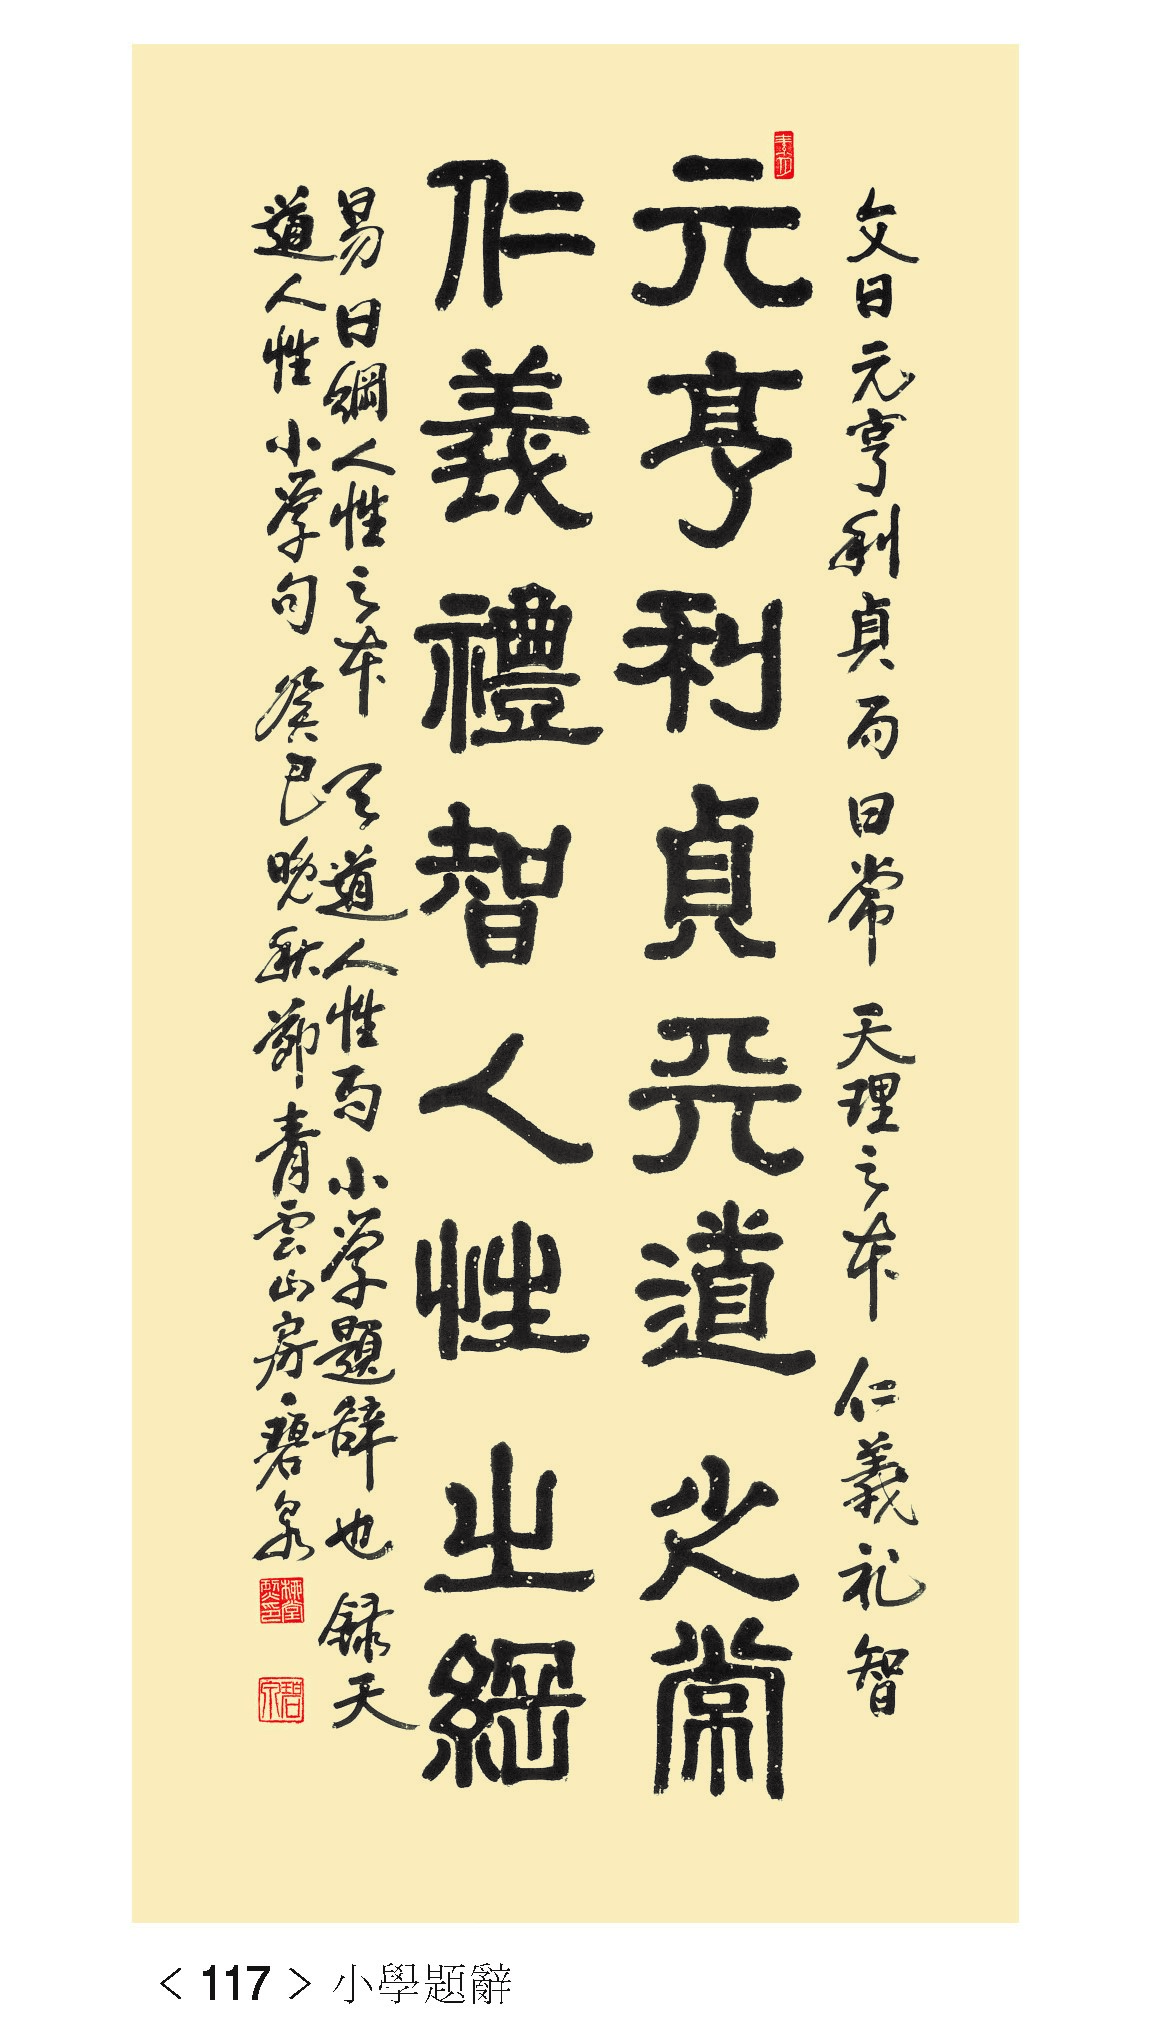 文曰元亨利貞而曰常 天理之本 仁義礼智
元亨利貞天道之常
仁義禮智人性之綱
易曰綱人性之本 天道人性而小学題辞也 録天
道人性小学句 癸巳晩秋節青雲山房碧泉
碧泉
< 117 > 小學題辭